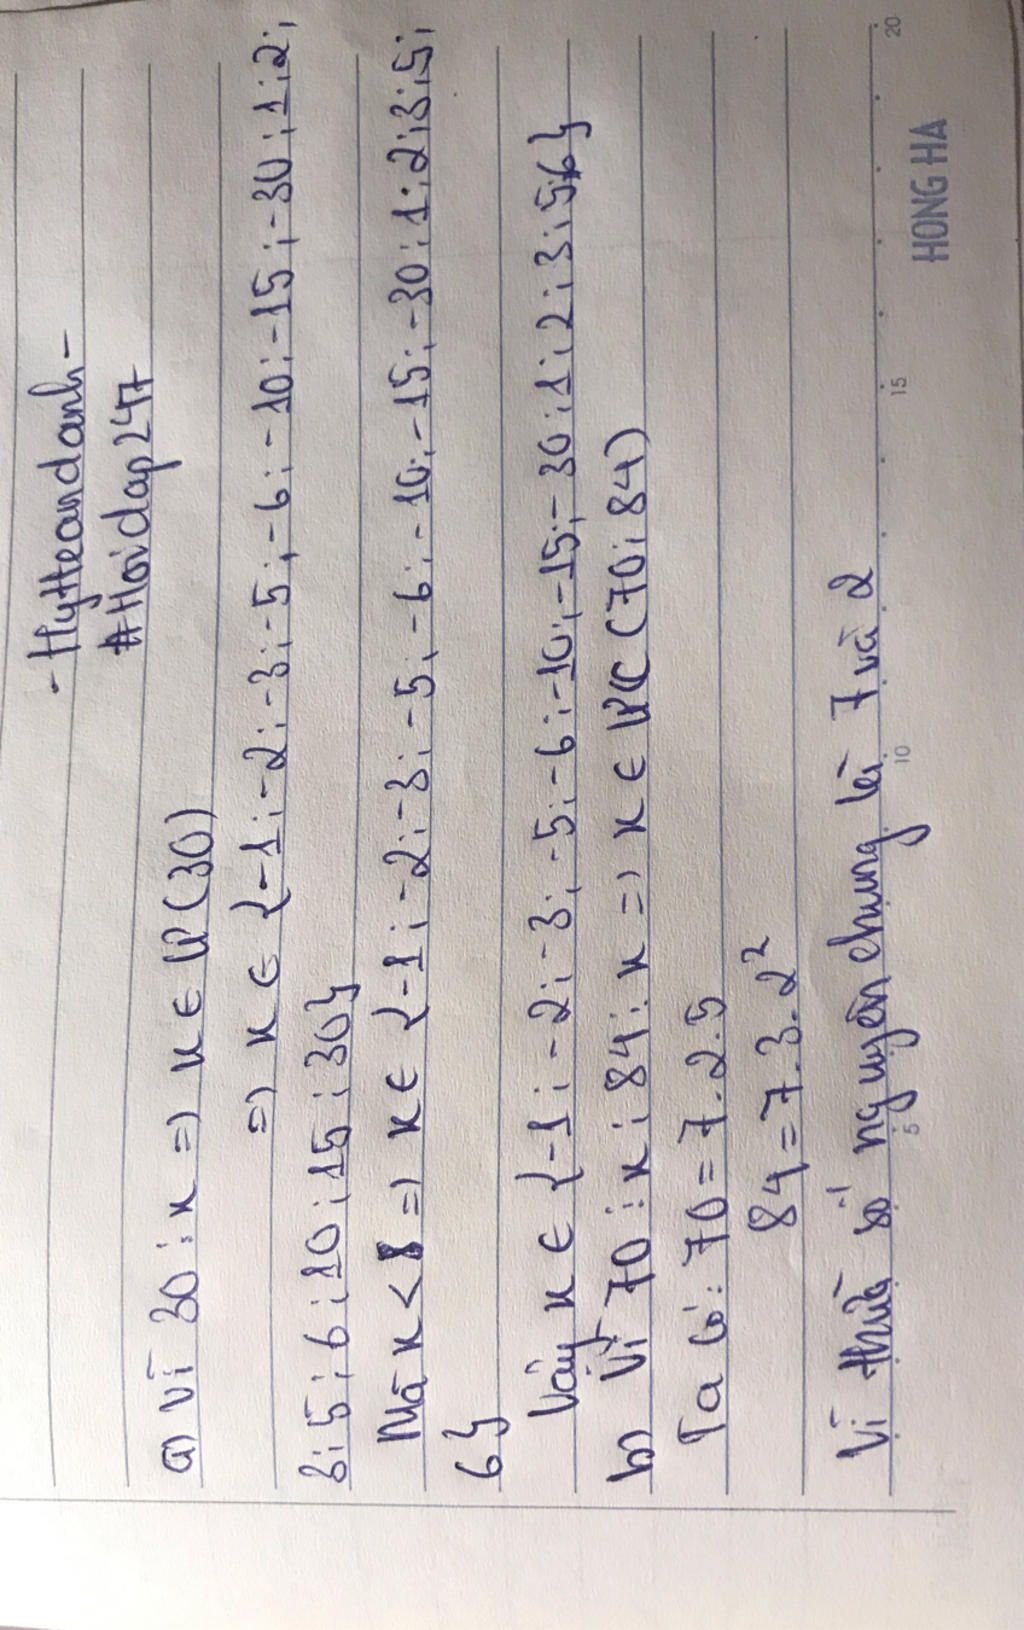 - Hytteandanh -
#Hoidap247
a) Vì 30 ⋮ x => x ∈ Ư(30)
=> x ∈ {-1; -2; -3; -5; -6; -10; -15; -30; 1; 2;
3; 5; 6; 10; 15; 30}
Mà x < 8 => x ∈ {-1; -2; -3; -5; -6; -10; -15; -30; 1; 2; 3; 5;
6}
Vậy x ∈ {-1; -2; -3; -5; -6; -10; -15; -30; 1; 2; 3; 5; 6}
b) Vì 70 ⋮ x; 84 ⋮ x => x ∈ ƯC(70; 84)
Ta có: 70 = 7.2.5
84 = 7.3.2²
Vì thừa số nguyên chung là 7 và 2
5 10 15 20
HONG HA